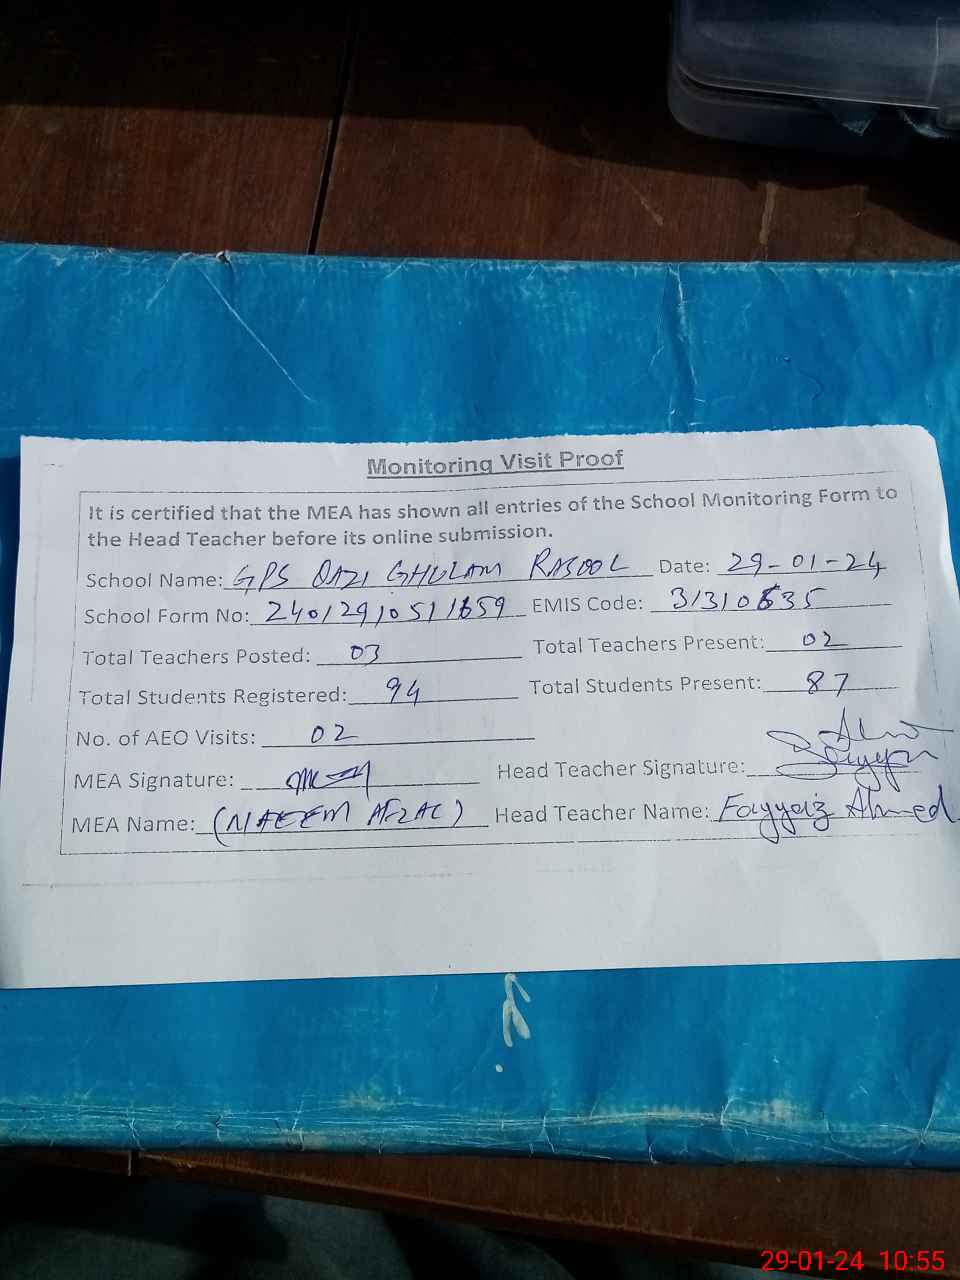 Monitoring Visit Proof
It is certified that the MEA has shown all entries of the School Monitoring Form to
the Head Teacher before its online submission.
School Name: GPS QAZI GHULAM RASOOL Date: 29-01-24
School Form No: EMIS Code:
Total Teachers Posted: 03 Total Teachers Present: 02
Total Students Registered: 94 Total Students Present: 87
No. of AEO Visits: 02
MEA Signature: Head Teacher Signature:
MEA Name: (NAEEM AFZAL) Head Teacher Name: Fayyaiz Ahmed
29-01-24 10:55